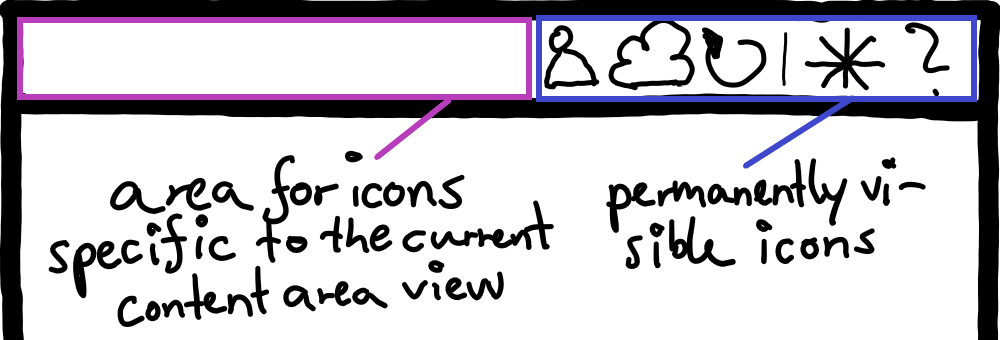 ?
area for icons
specific to the current
content area view
permanently vi-
sible icons